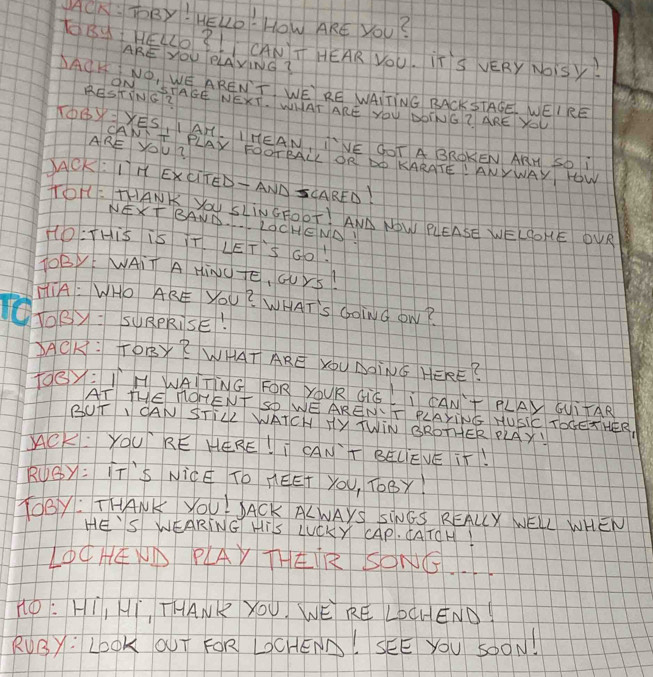 JACK: TOBY! HELLO! HOW ARE YOU?
TOBY: HELLO?! I CAN'T HEAR YOU. IT'S VERY NOISY!
ARE YOU PLAYING?
JACK: NO, WE AREN'T. WE'RE WAITING BACKSTAGE. WE'RE
ON STAGE NEXT. WHAT ARE YOU DOING? ARE YOU
RESTING?
TOBY: YES, I AM. I MEAN, I'VE GOT A BROKEN ARM SO I
CAN'T PLAY FOOTBALL OR DO KARATE! ANYWAY, HOW
ARE YOU?
JACK: I'M EXCITED - AND SCARED!
TOM: THANK YOU SLINGFOOT! AND NOW PLEASE WELCOME OUR
NEXT BAND.... LOCHEND!
MO: THIS IS IT LET'S GO!
TOBY: WAIT A MINUTE, GUYS!
MIA: WHO ARE YOU? WHAT'S GOING ON?
TO
TOBY: SURPRISE!
JACK: TOBY? WHAT ARE YOU DOING HERE?
TOBY: I'M WAITING FOR YOUR GIG! I CAN'T PLAY GUITAR
AT THE MOMENT SO WE AREN'T PLAYING MUSIC TOGETHER,
BUT I CAN STILL WATCH MY TWIN BROTHER PLAY!
JACK: YOU'RE HERE! I CAN'T BELIEVE IT!
RUBY: IT'S NICE TO MEET YOU, TOBY!
TOBY: THANK YOU! JACK ALWAYS SINGS REALLY WELL WHEN
HE'S WEARING HIS LUCKY CAP. CATCH!
LOCHEND PLAY THEIR SONG....
MO: Hi, Hi, THANK YOU. WE'RE LOCHEND!
RUBY: LOOK OUT FOR LOCHEND! SEE YOU SOON!